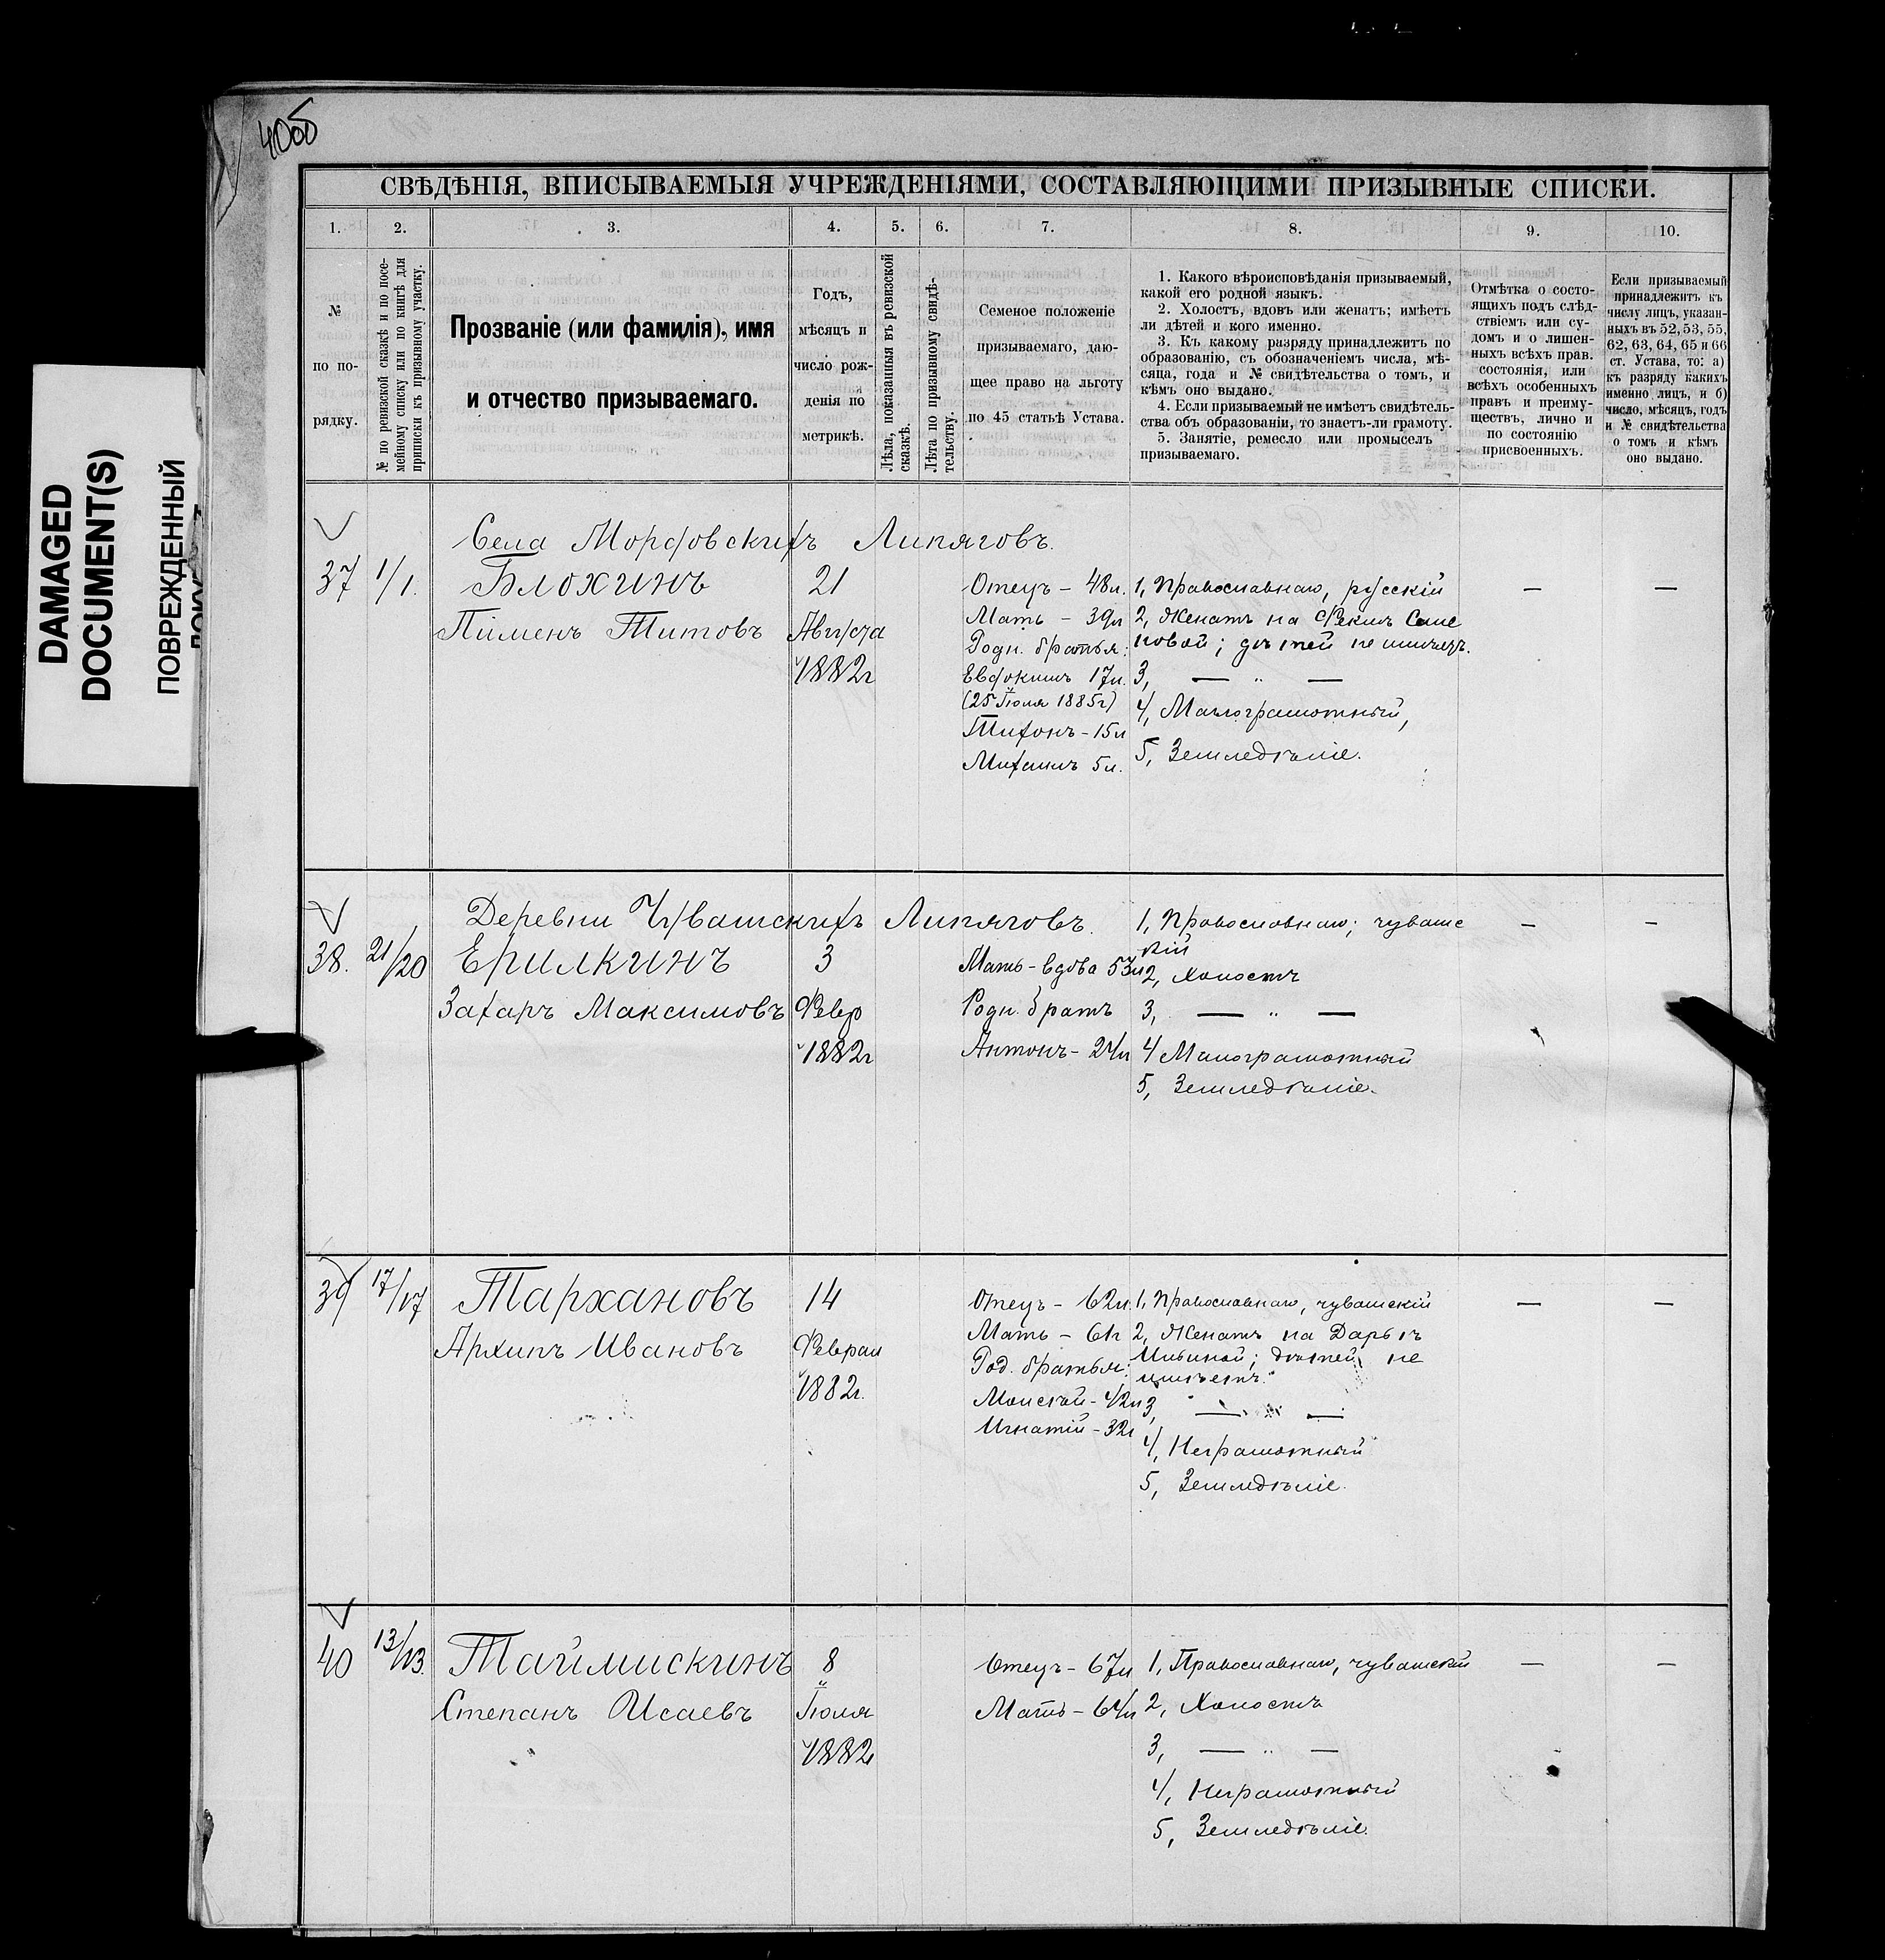 40об
DAMAGED
DOCUMENT(S)
ПОВРЕЖДЕННЫЙ
СВѢДѢНІЯ, ВПИСЫВАЕМЫЯ УЧРЕЖДЕНІЯМИ, СОСТАВЛЯЮЩИМИ ПРИЗЫВНЫЕ СПИСКИ.
1. 2. 3. 4. 5. 6. 7. 8. 9. 10.
№
по по-
рядку.
№ по ревизской сказкѣ и по посе-
мейному списку или по книгѣ для
приписки къ призывному участку.
Прозваніе (или фамилія), имя
и отчество призываемаго.
Годъ,
мѣсяцъ и
число рож-
денія по
метрикѣ.
Лѣта, показанныя въ ревизской
сказкѣ.
Лѣта по призывному свидѣ-
тельству.
Семеное положеніе
призываемаго, даю-
щее право на льготу
по 45 статьѣ Устава.
1. Какого вѣроисповѣданія призываемый,
какой его родной языкъ.
2. Холостъ, вдовъ или женатъ; имѣетъ
ли дѣтей и кого именно.
3. Къ какому разряду принадлежитъ по
образованію, съ обозначеніемъ числа, мѣ-
сяца, года и № свидѣтельства о томъ, и
кѣмъ оно выдано.
4. Если призываемый не имѣетъ свидѣтель-
ства объ образованіи, то знаетъ-ли грамоту.
5. Занятіе, ремесло или промыселъ
призываемаго.
Отмѣтка о состо-
ящихъ подъ слѣд-
ствіемъ или су-
домъ и о лишен-
ныхъ всѣхъ прав.
состоянія, или
всѣхъ особенныхъ
правъ и преиму-
ществъ, лично и
по состоянію
присвоенныхъ.
Если призываемый
принадлежитъ къ
числу лицъ, указан-
ныхъ въ 52, 53, 55,
62, 63, 64, 65 и 66
ст. Устава, то: а)
къ разряду какихъ
именно лицъ, и б)
число, мѣсяцъ, годъ
и № свидѣтельства
о томъ и кѣмъ
оно выдано.
Села Мордовскихъ Липяговъ.
37 1/1. Блохинъ
Пименъ Титовъ
21
Августа
1882г
Отецъ – 48л.
Мать – 39л
Родн. братья:
Евдокимъ 17л.
(25 Іюля 1885г)
Тихонъ – 15л
Михаилъ 5л.
1, Православнаго, русскій
2, Женатъ на Феклѣ Семе
новой; дѣтей не имѣетъ.
3, — „ —
4, Малограмотный,
5, Земледѣліе.
— —
Деревни Чувашскихъ Липяговъ.
38. 21/20 Ерилкинъ
Захаръ Максимовъ
3
Февр
1882г
Мать – вдова 53л
Родн. братъ
Антонъ – 24л
1, Православнаго; чувашс
кій
2, Холостъ
3, — „ —
4 Малограмотный
5, Земледѣліе.
— —
39 17/17 Тархановъ
Архипъ Ивановъ
14
Феврал
1882г.
Отецъ – 62л.
Мать – 61л
Род. братья:
Моисей – 42л
Игнатій – 32л
1, Православнаго, чувашскій
2, Женатъ на Дарьѣ
Ильиной; дѣтей не
имѣетъ.
3, — „ —
4, Неграмотный
5, Земледѣліе.
— —
40 13/13. Таймискинъ
Степанъ Исаевъ
8
Іюля
1882г
Отецъ – 67л
Мать – 64л
1, Православнаго, чувашскій
2, Холостъ
3, — „ —
4, Неграмотный
5, Земледѣліе.
— —